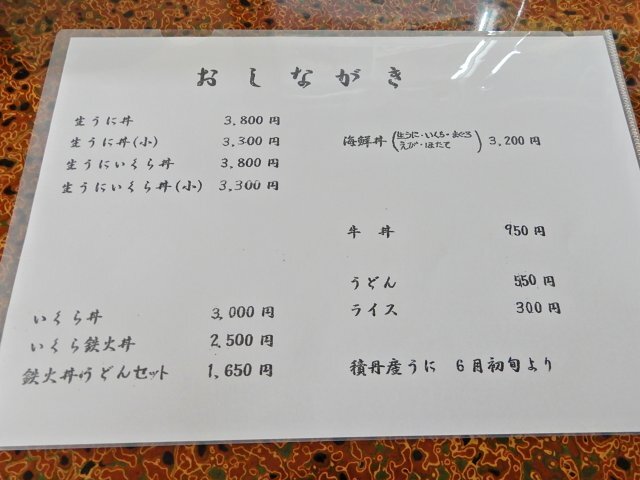 おしながき
生うに丼 3,800円
生うに丼(小) 3,300円
生うにいくら丼 3,800円
生うにいくら丼(小) 3,300円
いくら丼 3,000円
いくら鉄火丼 2,500円
鉄火丼うどんセット 1,650円
海鮮丼(生うに・いくら・まぐろ えび・ほたて) 3,200円
牛丼 950円
うどん 550円
ライス 300円
積丹産うに 6月初旬より